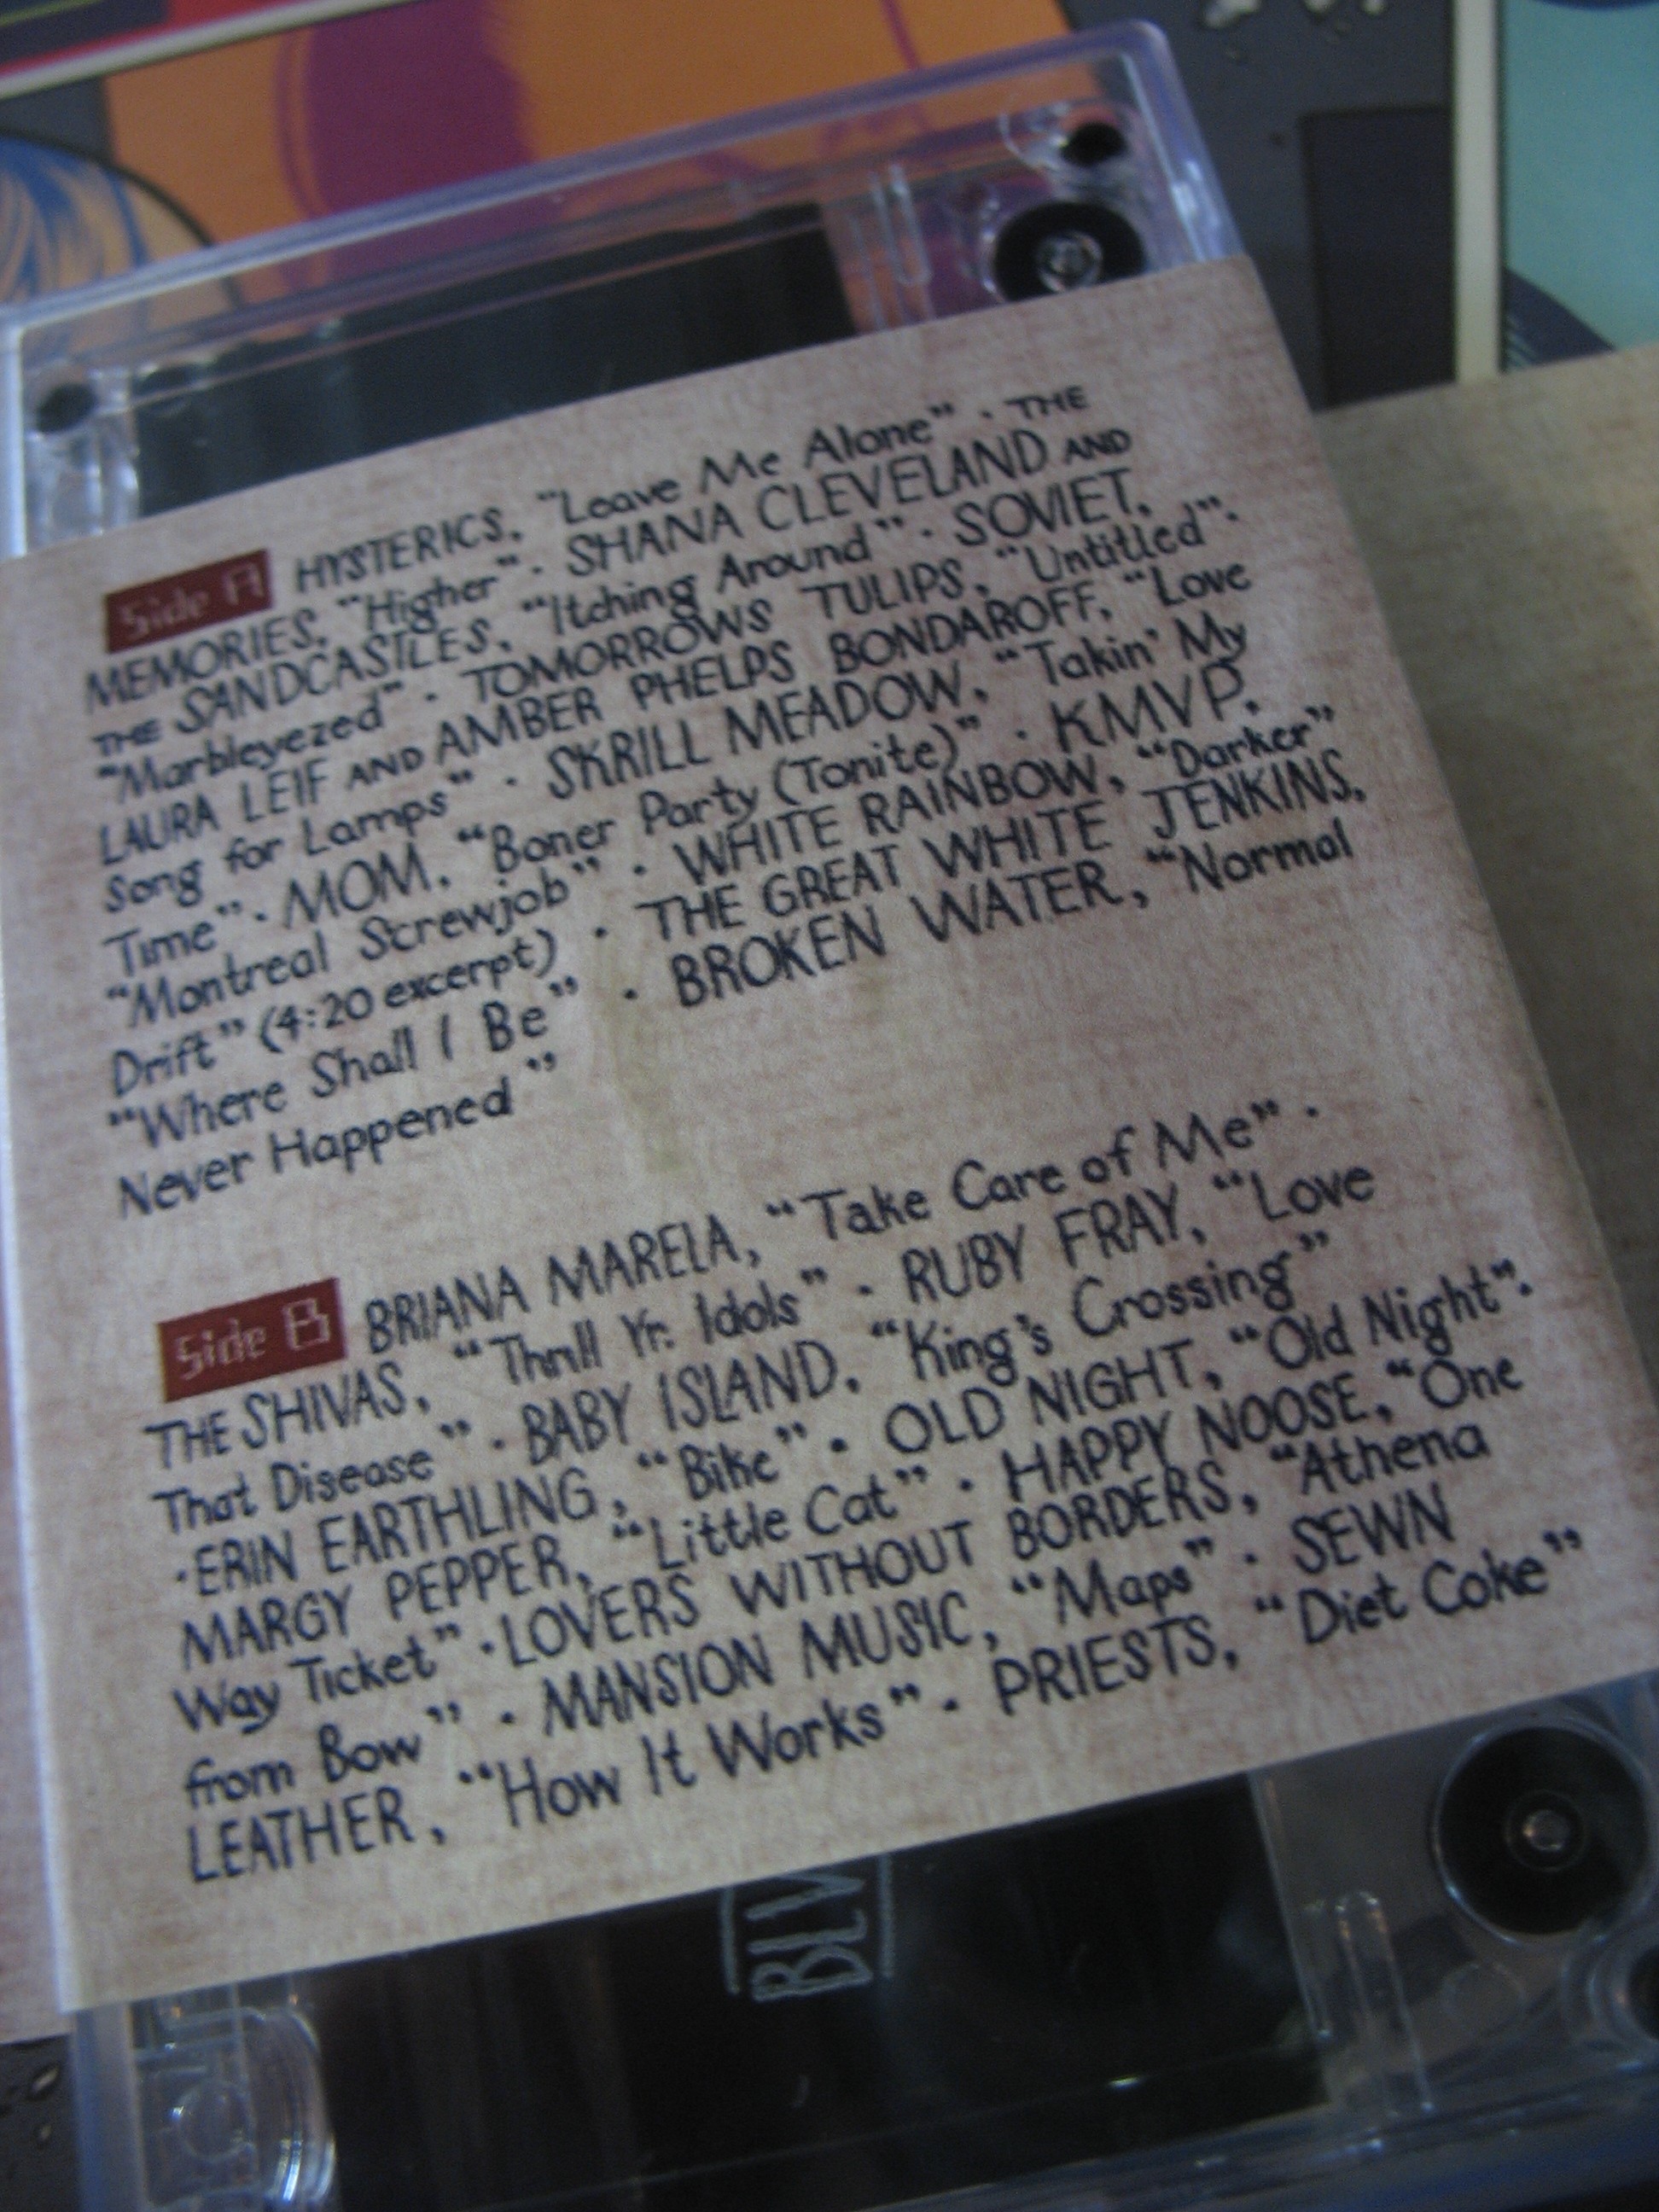 Side A HYSTERICS, "Leave Me Alone" · THE
MEMORIES, "Higher" · SHANA CLEVELAND AND
THE SANDCASTLES, "Itching Around" · SOVIET,
"Marbleyezed" · TOMORROWS TULIPS, "Untitled" ·
LAURA LEIF AND AMBER PHELPS BONDAROFF, "Love
Song for Lamps" · SKRILL MEADOW, "Takin' My
Time" · MOM, "Boner Party (Tonite)" · KMVP,
"Montreal Screwjob" · WHITE RAINBOW, "Darker"
Drift" (4:20 excerpt) · THE GREAT WHITE JENKINS,
"Where Shall I Be" · BROKEN WATER, "Normal
Never Happened"
Side B BRIANA MARELA, "Take Care of Me" ·
THE SHIVAS, "Thrill Yr. Idols" · RUBY FRAY, "Love
That Disease" · BABY ISLAND, "King's Crossing"
· ERIN EARTHLING, "Bike" · OLD NIGHT, "Old Night" ·
MARGY PEPPER, "Little Cat" · HAPPY NOOSE, "One
Way Ticket" · LOVERS WITHOUT BORDERS, "Athena
from Bow" · MANSION MUSIC, "Maps" · SEWN
LEATHER, "How It Works" · PRIESTS, "Diet Coke"